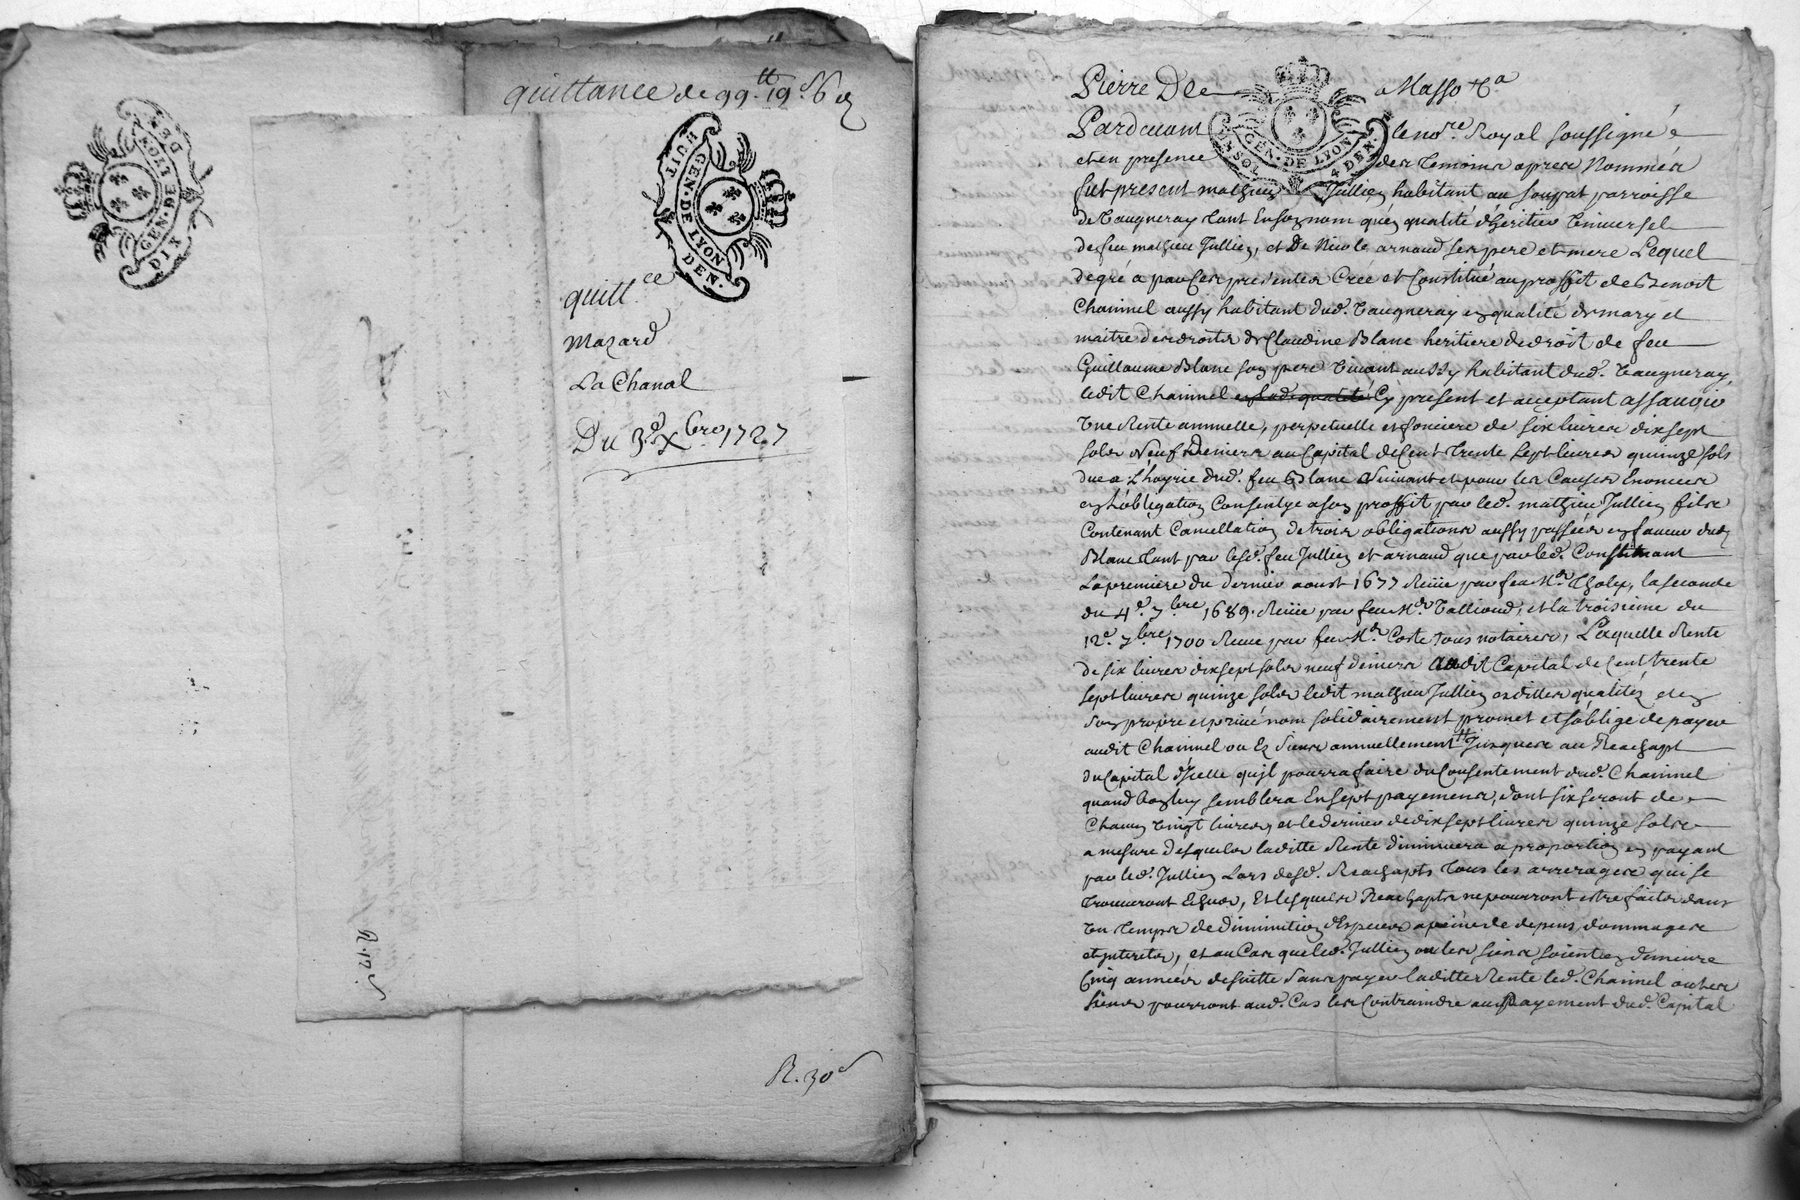 quittance de 99.tt 19.s 6 d
GEN. DE LYON
DIX DEN.
GEN. DE LYON
HUIT DEN.
quitt.ce
Mazard
La Chanal
Du 3.e Xbre 1727
R. 12.s
R. 30.s
Pierre De Masso &a
GEN. DE LYON
4 DEN
Pardevant le no.re Royal soussigné
et en presence des temoins apres Nommés
fut present mathieu Jullien habitant au parroisse
de Vaugneray tant En son nom qu'en qualité d'heritier Universel
de feu mathieu Jullien, et De Nicole arnaud ses pere et mere Lequel
de gré a par Ces presentes Créé et Constitué au proffit de Benoit
Chainnel aussy habitant dud. Vaugneray en qualité de mary et
maitre des droits de Claudine Blanc heritiere de droit de feu
Guillaume Blanc son pere Vivant aussy habitant dud. Vaugneray,
ledit Chainnel en lad. qualité Cy present et acceptant assavoir
Une Rente annuelle, perpetuelle et fonciere de six livres dix sept
sols Neuf Deniers au Capital de Cent Trente Sept livres quinze sols
due a L'hoyrie dud. feu Blanc Suivant et pour les Causes Enoncées
en l'obligation Consentye a son proffit par led. mathieu Jullien fils
Contenant Cancellation de trois obligations aussy passées en faveur dud.
Blanc tant par lesd. feu Jullien et arnaud que par led. Constituant
La premiere du dernier aoust 1677 Reçüe par feu M.e Tholy, la seconde
du 4.e 7.bre 1689. Reçüe par feu M.e, et la troisieme du
12.e 7.bre 1700 Reçue par feu M.e Coste tous notaires, Laquelle Rente
de six livres dix sept sols neuf deniers audit Capital de Cent trente
sept livres quinze sols ledit mathieu Jullien esdittes qualités et en
son propre et privé nom solidairement promet et s'oblige de payer
audit Chainnel ou Es Siens annuellement Jusques au Reachapt
du Capital d'Icelle qu'il pourra faire du Consentement dud. Chainnel
quand bon luy semblera En sept payements, dont six seront de
Chacun Vingt livres, et le dernier de dix sept livres quinze sols
a mesure desquels laditte Rente diminuera a proportion en payant
par led. Jullien Lors desd. Reachapts tous les arrerages qui se
trouveront Echeus, Et lesquels Reachapts ne pourront estre faites dans
Un Temps de Diminution d'Especes a peine de depens, dommages
et interets, et au Cas que led. Jullien ou les siens soient en demeure
Cinq années de suitte sans payer laditte Rente led. Chainnel ou les
siens pourront aud. Cas les Contraindre au Payement dud. Capital